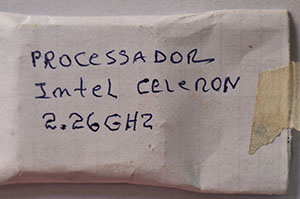 PROCESSADOR
Intel CELERON
2.26GHZ